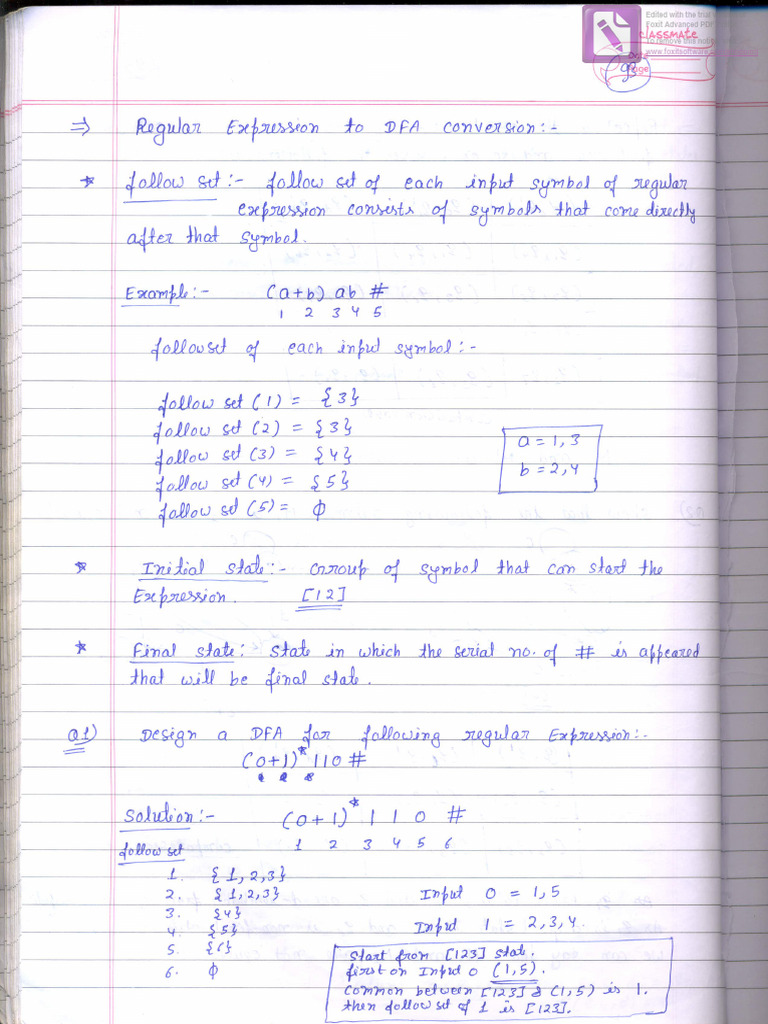 Edited with the trial
Foxit Advanced PDF
To remove this not
www.foxitsoftware
classmate
Date
Page
93
⇒ Regular Expression to DFA conversion:-
* follow set:- follow set of each input symbol of regular
expression consists of symbols that come directly
after that symbol.
Example:- (a+b) ab #
1 2 3 4 5
followset of each input symbol:-
follow set (1) = {3}
follow set (2) = {3}
follow set (3) = {4}
follow set (4) = {5}
follow set (5) = ϕ
a = 1, 3
b = 2, 4
* Initial state:- Group of symbol that can start the
Expression. [12]
* Final state: state in which the serial no. of # is appeared
that will be final state.
Q1) Design a DFA for following regular Expression:-
(0+1)* 110#
Solution:- (0+1)* 1 1 0 #
1 2 3 4 5 6
follow set
1. {1,2,3}
2. {1,2,3}
3. {4}
4. {5}
5. {6}
6. ϕ
Input 0 = 1,5
Input 1 = 2,3,4.
Start from [123] state.
first on Input 0 (1,5).
common between [123] & (1,5) is 1.
then follow set of 1 is [123].